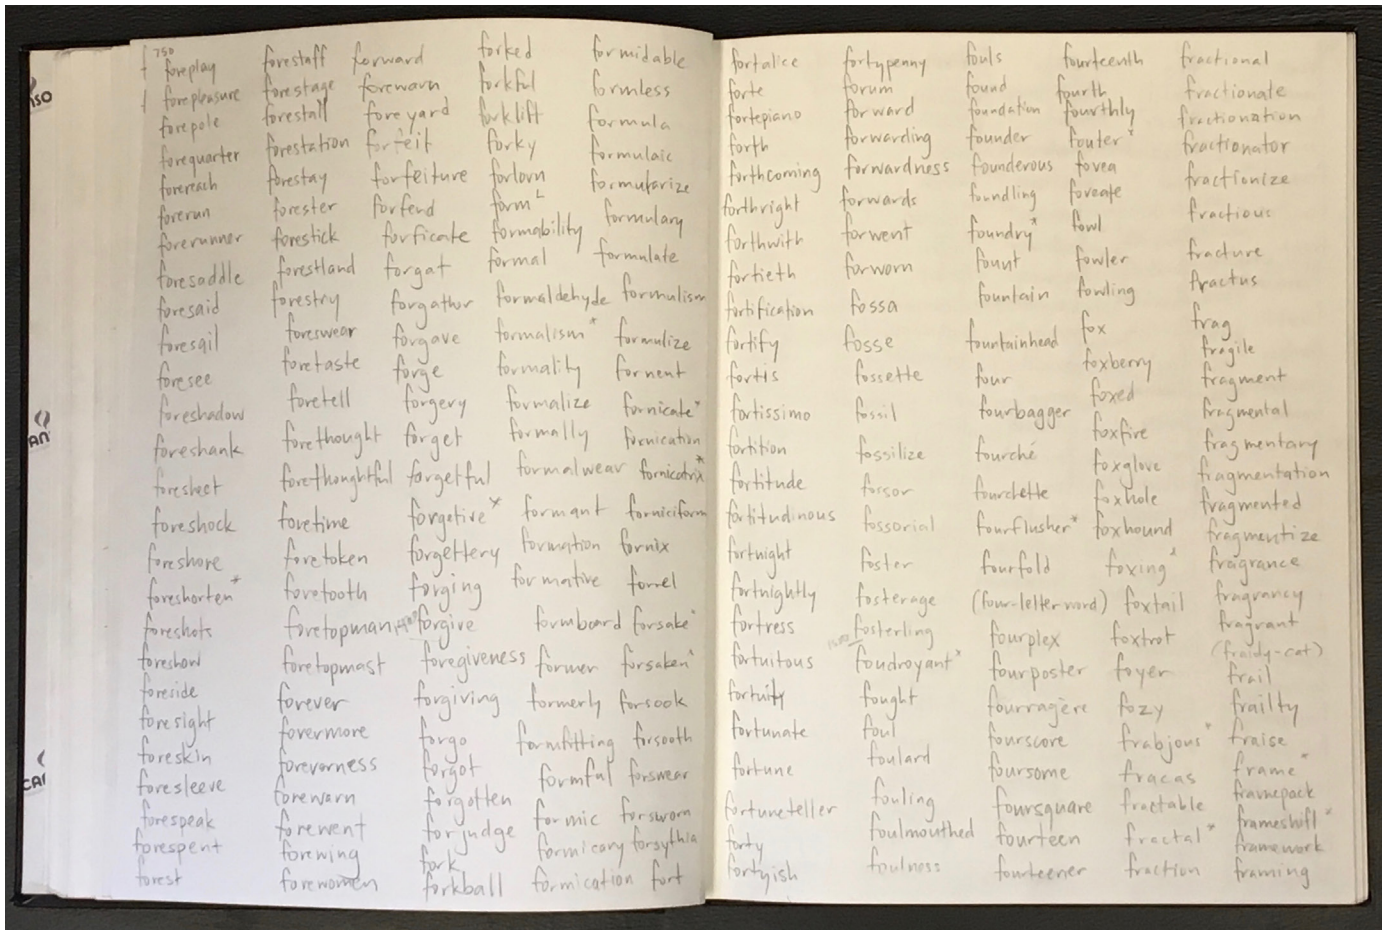 750
foreplay
forepleasure
forepole
forequarter
forereach
forerun
forerunner
foresaddle
foresaid
foresail
foresee
foreshadow
foreshank
foresheet
foreshock
foreshore
foreshorten*
foreshots
foreshow
foreside
foresight
foreskin
foresleeve
forespeak
forespent
forest
forestaff
forestage
forestall
forestation
forestay
forester
forestick
forestland
forestry
foreswear
foretaste
foretell
forethought
forethoughtful
foretime
foretoken
foretooth
foretopman
foretopmast
forever
forevermore
foreverness
forewarn
forewent
forewing
forewomen
forward
forewarn
foreyard
forfeit
forfeiture
forfend
forficate
forgat
forgather
forgave
forge
forgery
forget
forgetful
forgetive*
forgettery
forging
forgive
foregiveness
forgiving
forgo
forgot
forgotten
forjudge
fork
forkball
forked
forkful
forklift
forky
forlorn
form
formability
formal
formaldehyde
formalism*
formality
formalize
formally
formalwear
formant
formation
formative
formboard
former
formerly
formfitting
formful
formic
formicary
formication
formidable
formless
formula
formulaic
formularize
formulary
formulate
formulism
formulize
forment
fornicate*
fornication
fornicatrix*
forniciform
fornix
forrel
forsake*
forsaken*
forsook
forsooth
forswear
forsworn
forsythia
fort
fortalice
forte
fortepiano
forth
forthcoming
forthright
forthwith
fortieth
fortification
fortify
fortis
fortissimo
fortition
fortitude
fortitudinous
fortnight
fortnightly
fortress
fortuitous
fortuity
fortunate
fortune
fortuneteller
forty
fortyish
fortypenny
forum
forward
forwarding
forwardness
forwards
forwent
forworn
fossa
fosse
fossette
fossil
fossilize
fossor
fossorial
foster
fosterage
fosterling
foudroyant*
fought
foul
foulard
fouling
foulmouthed
foulness
fouls
found
foundation
founder
founderous
foundling
foundry*
fount
fountain
fountainhead
four
fourbagger
fourché
fourchette
fourflusher*
fourfold
(four-letter word)
fourplex
fourposter
fourragère
fourscore
foursome
foursquare
fourteen
fourteener
fourteenth
fourth
fourthly
fouter*
fovea
foveate
fowl
fowler
fowling
fox
foxberry
foxed
foxfire
foxglove
foxhole
foxhound
foxing*
foxtail
foxtrot
foyer
fozy
frabjous*
fracas
fractable
fractal*
fraction
fractional
fractionate
fractionation
fractionator
fractionize
fractious
fracture
fractus
frag
fragile
fragment
fragmental
fragmentary
fragmentation
fragmented
fragmentize
fragrance
fragrancy
fragrant
(fraidy-cat)
frail
frailty
fraise
frame*
framepack
frameshift*
framework
framing